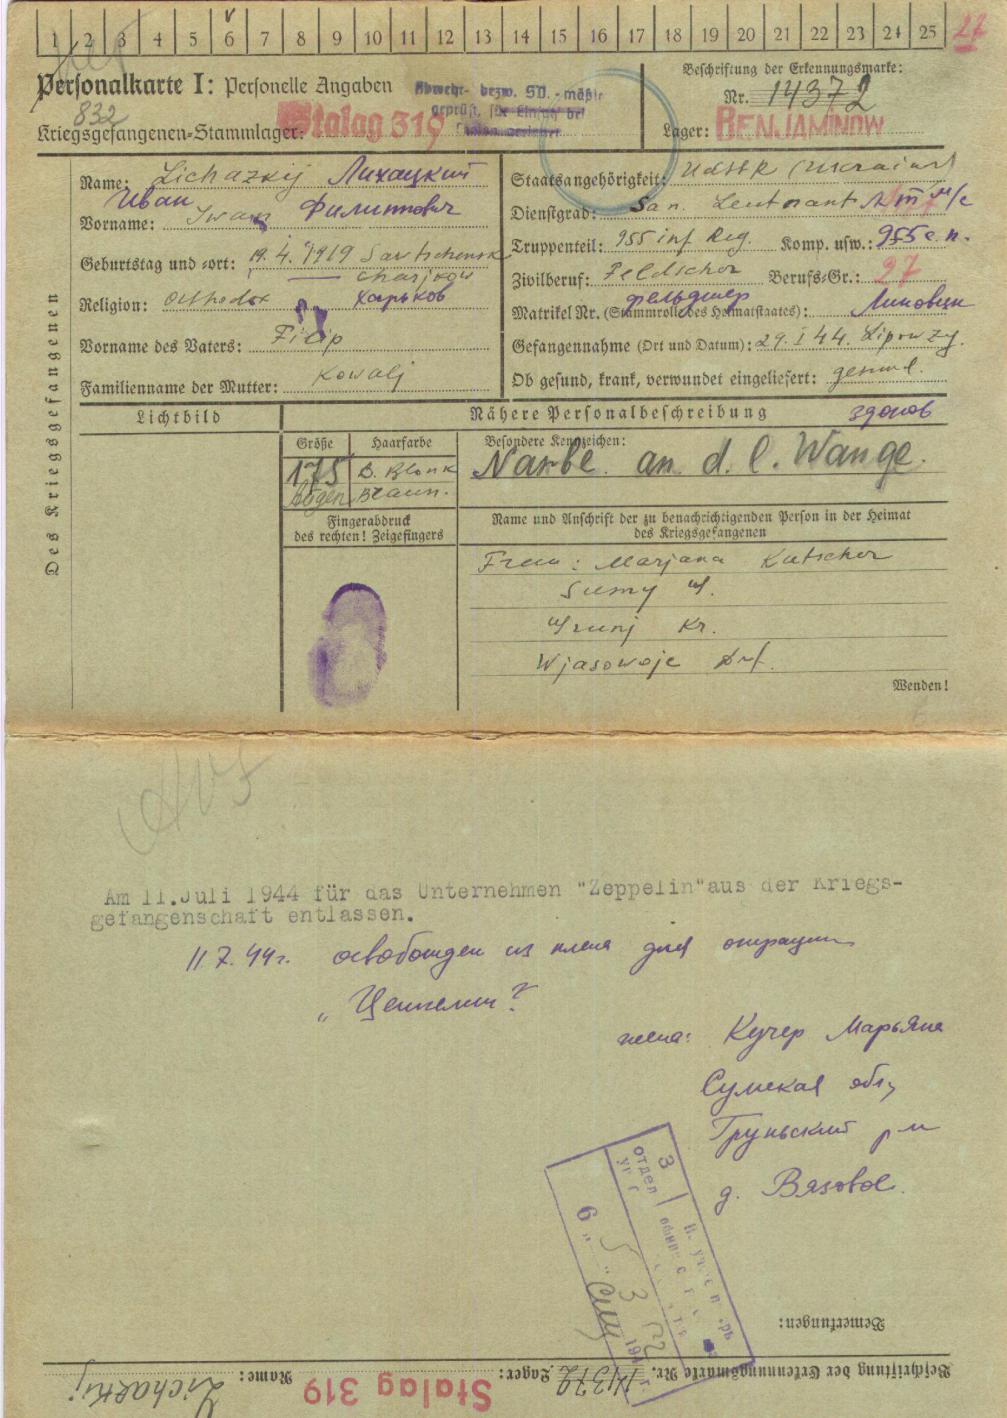 1 2 3 4 5 6 7 8 9 10 11 12 13 14 15 16 17 18 19 20 21 22 23 24 25 27
Personalkarte I: Personelle Angaben
832
Kriegsgefangenen-Stammlager: Stalag 319
Abwehr- bezw. SD.-mäßig
geprüft, für Einsatz bei
Beschriftung der Erkennungsmarke:
Nr. 14372
Lager: BENJAMINOW
Des Kriegsgefangenen
Name: Lichazkij Лихацкий
Иван
Vorname: Iwan Филиппович
Geburtstag und -ort: 19.4.1919
Charjkow
Religion: Orthodox Харьков
Vorname des Vaters: Filip
Familienname der Mutter: Kowalj
Staatsangehörigkeit: UdSSR (Ukraine)
Dienstgrad: San. Leutnant
Truppenteil: 955 inf Reg. Komp. usw.: 955 с.п.
Zivilberuf: Feldscher Berufs-Gr.: 27
фельдшер
Matrikel Nr. (Stammrolle des Heimatstaates): Липовцы
Gefangennahme (Ort und Datum): 29. I 44. Lipowzy.
Ob gesund, krank, verwundet eingeliefert: gesund.
Lichtbild
Nähere Personalbeschreibung здоров
Größe Haarfarbe
175 D. Blonk
Augen Braun.
Besondere Kennzeichen:
Narbe an d. l. Wange.
Fingerabdruck
des rechten! Zeigefingers
Name und Anschrift der zu benachrichtigenden Person in der Heimat
des Kriegsgefangenen
Frau: Marjana Kutscher
Sumy
Kr.
Wjasowoje Drf.
Wenden!
Am 11.Juli 1944 für das Unternehmen "Zeppelin"aus der Kriegs-
gefangenschaft entlassen.
11.7.44г. освобожден из плена для операции
„Цеппелин"
жена: Кучер Марьяна
Сумская обл,
Груньский р-н
д. Вязовое.
3
отдел
6
Bemerkungen:
Beschriftung der Erkennungsmarke Nr. 14372 Lager: Stalag 319 Name: Lichazkij